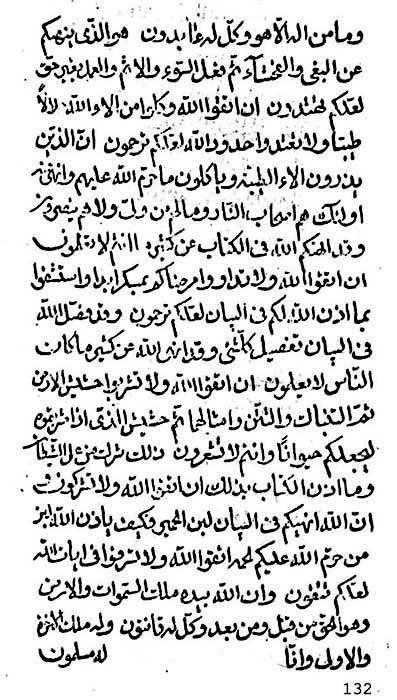 وما من اله الا هو وكل له عابدون هو الذي ينهيكم
عن البغي والفحشاء ثم فعل السوء والاثم والعمل بغير حق
لعلكم تهتدون ان اتقوا الله وكلوا من الاء الله حلالا
طيبا ولا تعتدوا حدود الله لعلكم ترحمون ان الذين
يذرون الاء الطيبة وياكلون ما حرم الله عليهم
اولئك هم اصحاب النار وما لهم من ولي ولا هم ينصرون
وقد الله في الكتاب عن كثيره انتم لا تعلمون
ان اتقوا الله ولا تداووا مرضاكم بمسكر ابدا واستشفوا
بما اذن الله لكم في البيان لعلكم ترحمون وقد فصل الله
في البيان تفصيل كلشئ وقد الله عن كثيره ما كان
الناس لا يعلمون ان اتقوا الله ولا تشربوا حشيش الارض
ثم التنباك والتتن وامثالها ثم حشيش الذي اذا شربوه
ليجعلكم حيوانا وانتم لا تشعرون ذلك شرك من عمل الشيطان
وما اذن الكتاب بذلك ان اتقوا الله ولا تشركون
ان الله انهيكم في البيان لبن الحمير فكيف ياذن الله
من حرم الله عليكم لحمه اتقوا الله ولا في ايات الله
لعلكم تتقون وان الله بيده ملك السموات والارض
وهو الحق من قبل ومن بعد وكل له قانتون وله ملك الاخرة
والاولى وانا له مسلمون
132